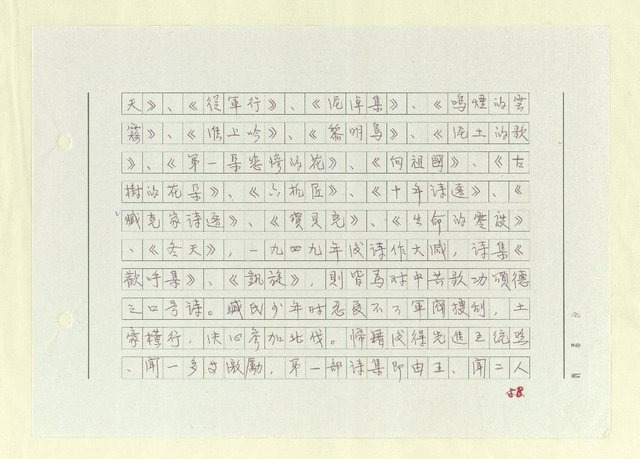 天》、《從軍行》、《泥淖集》、《嗚煙的雲
霧》、《淮上吟》、《黎明鳥》、《泥土的歌
》、《第一朵悲慘的花》、《向祖國》、《古
樹的花朵》、《六机匠》、《十年诗选》、《
臧克家诗选》、《寶貝兒》、《生命的零度》
、《冬天》，一九四九年後诗作大减，诗集《
歡呼集》、《凱旋》，則皆為对中共歌功頌德
之口号诗。臧氏少年时忍受不了軍閥搜刮，土
豪橫行，决心参加北伐。歸籍後得先進王统照
、聞一多之激勵，第一部诗集即由王、聞二人
58.